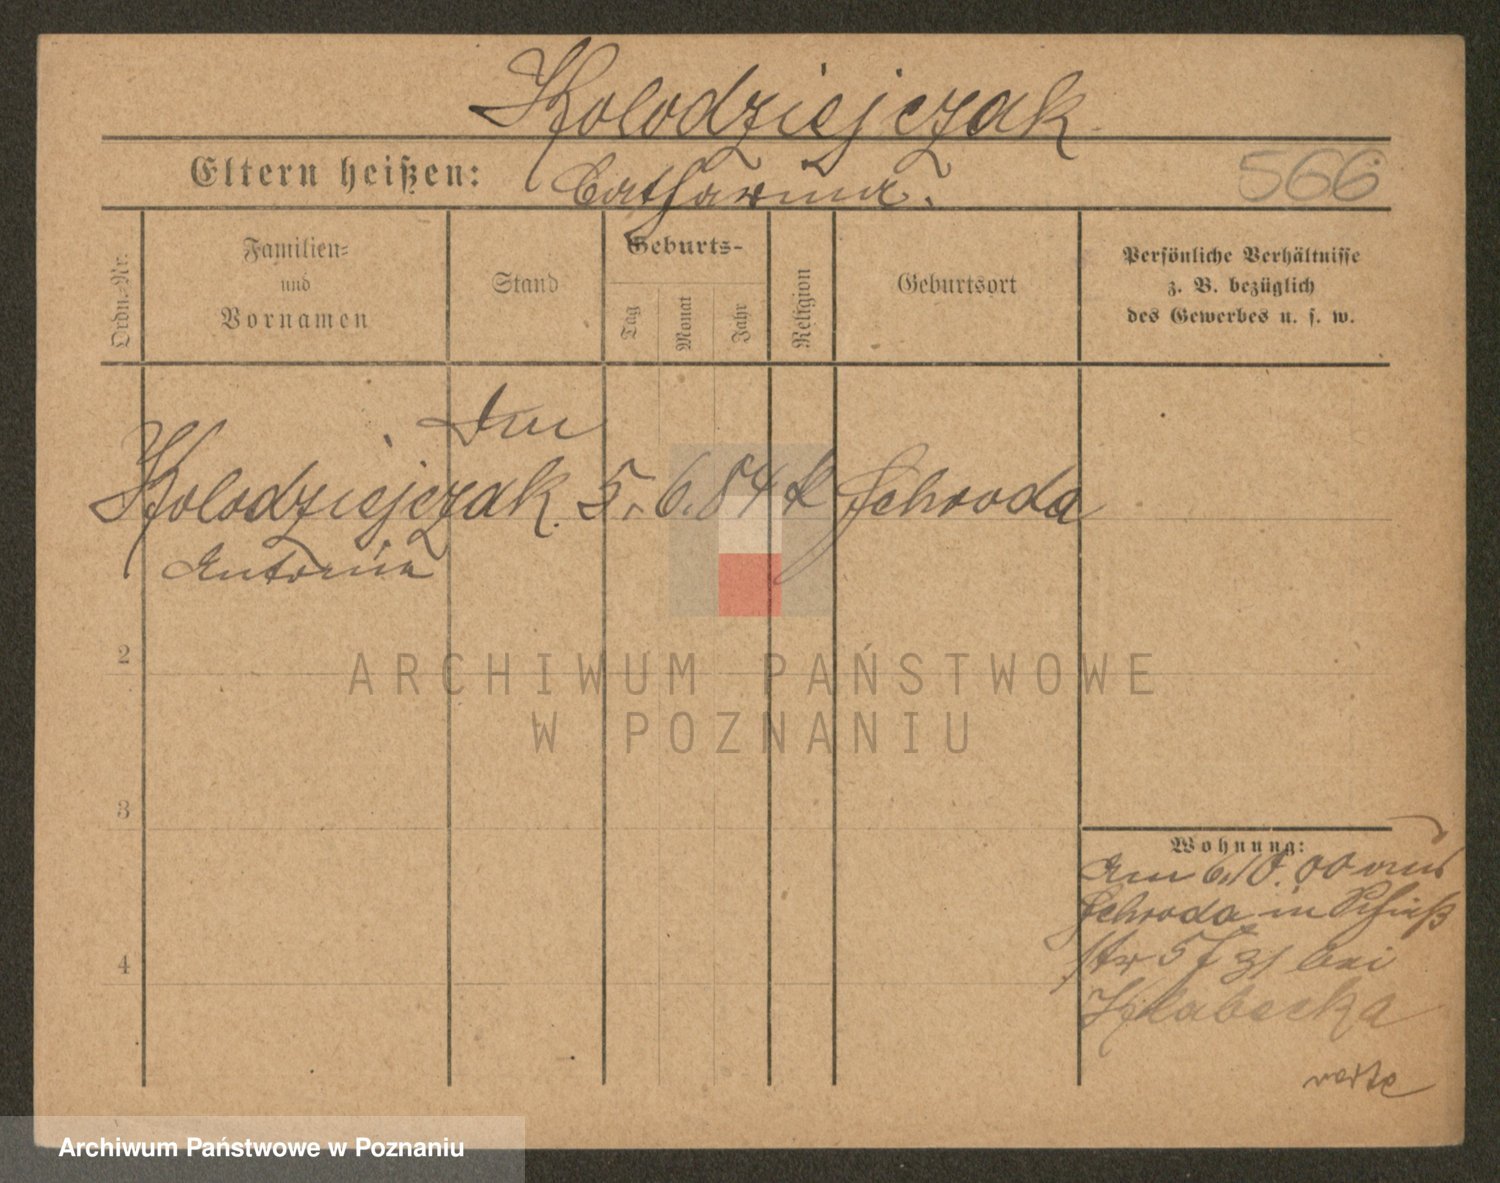 Kolodziejczak
Eltern heißen: Catharina.
566
Ordn.-Nr.
Familien-
und
Vornamen
Stand
Geburts-
Tag
Monat
Jahr
Religion
Geburtsort
Persönliche Verhältnisse
z. B. bezüglich
des Gewerbes u. s. w.
Kolodziejczak. 5. 6. 84 k Schroda
Antonia
2
3
4
Wohnung:
Am 6.10.00 aus
Schroda in
str 57 bei
ARCHIWUM PAŃSTWOWE
W POZNANIU
Archiwum Państwowe w Poznaniu